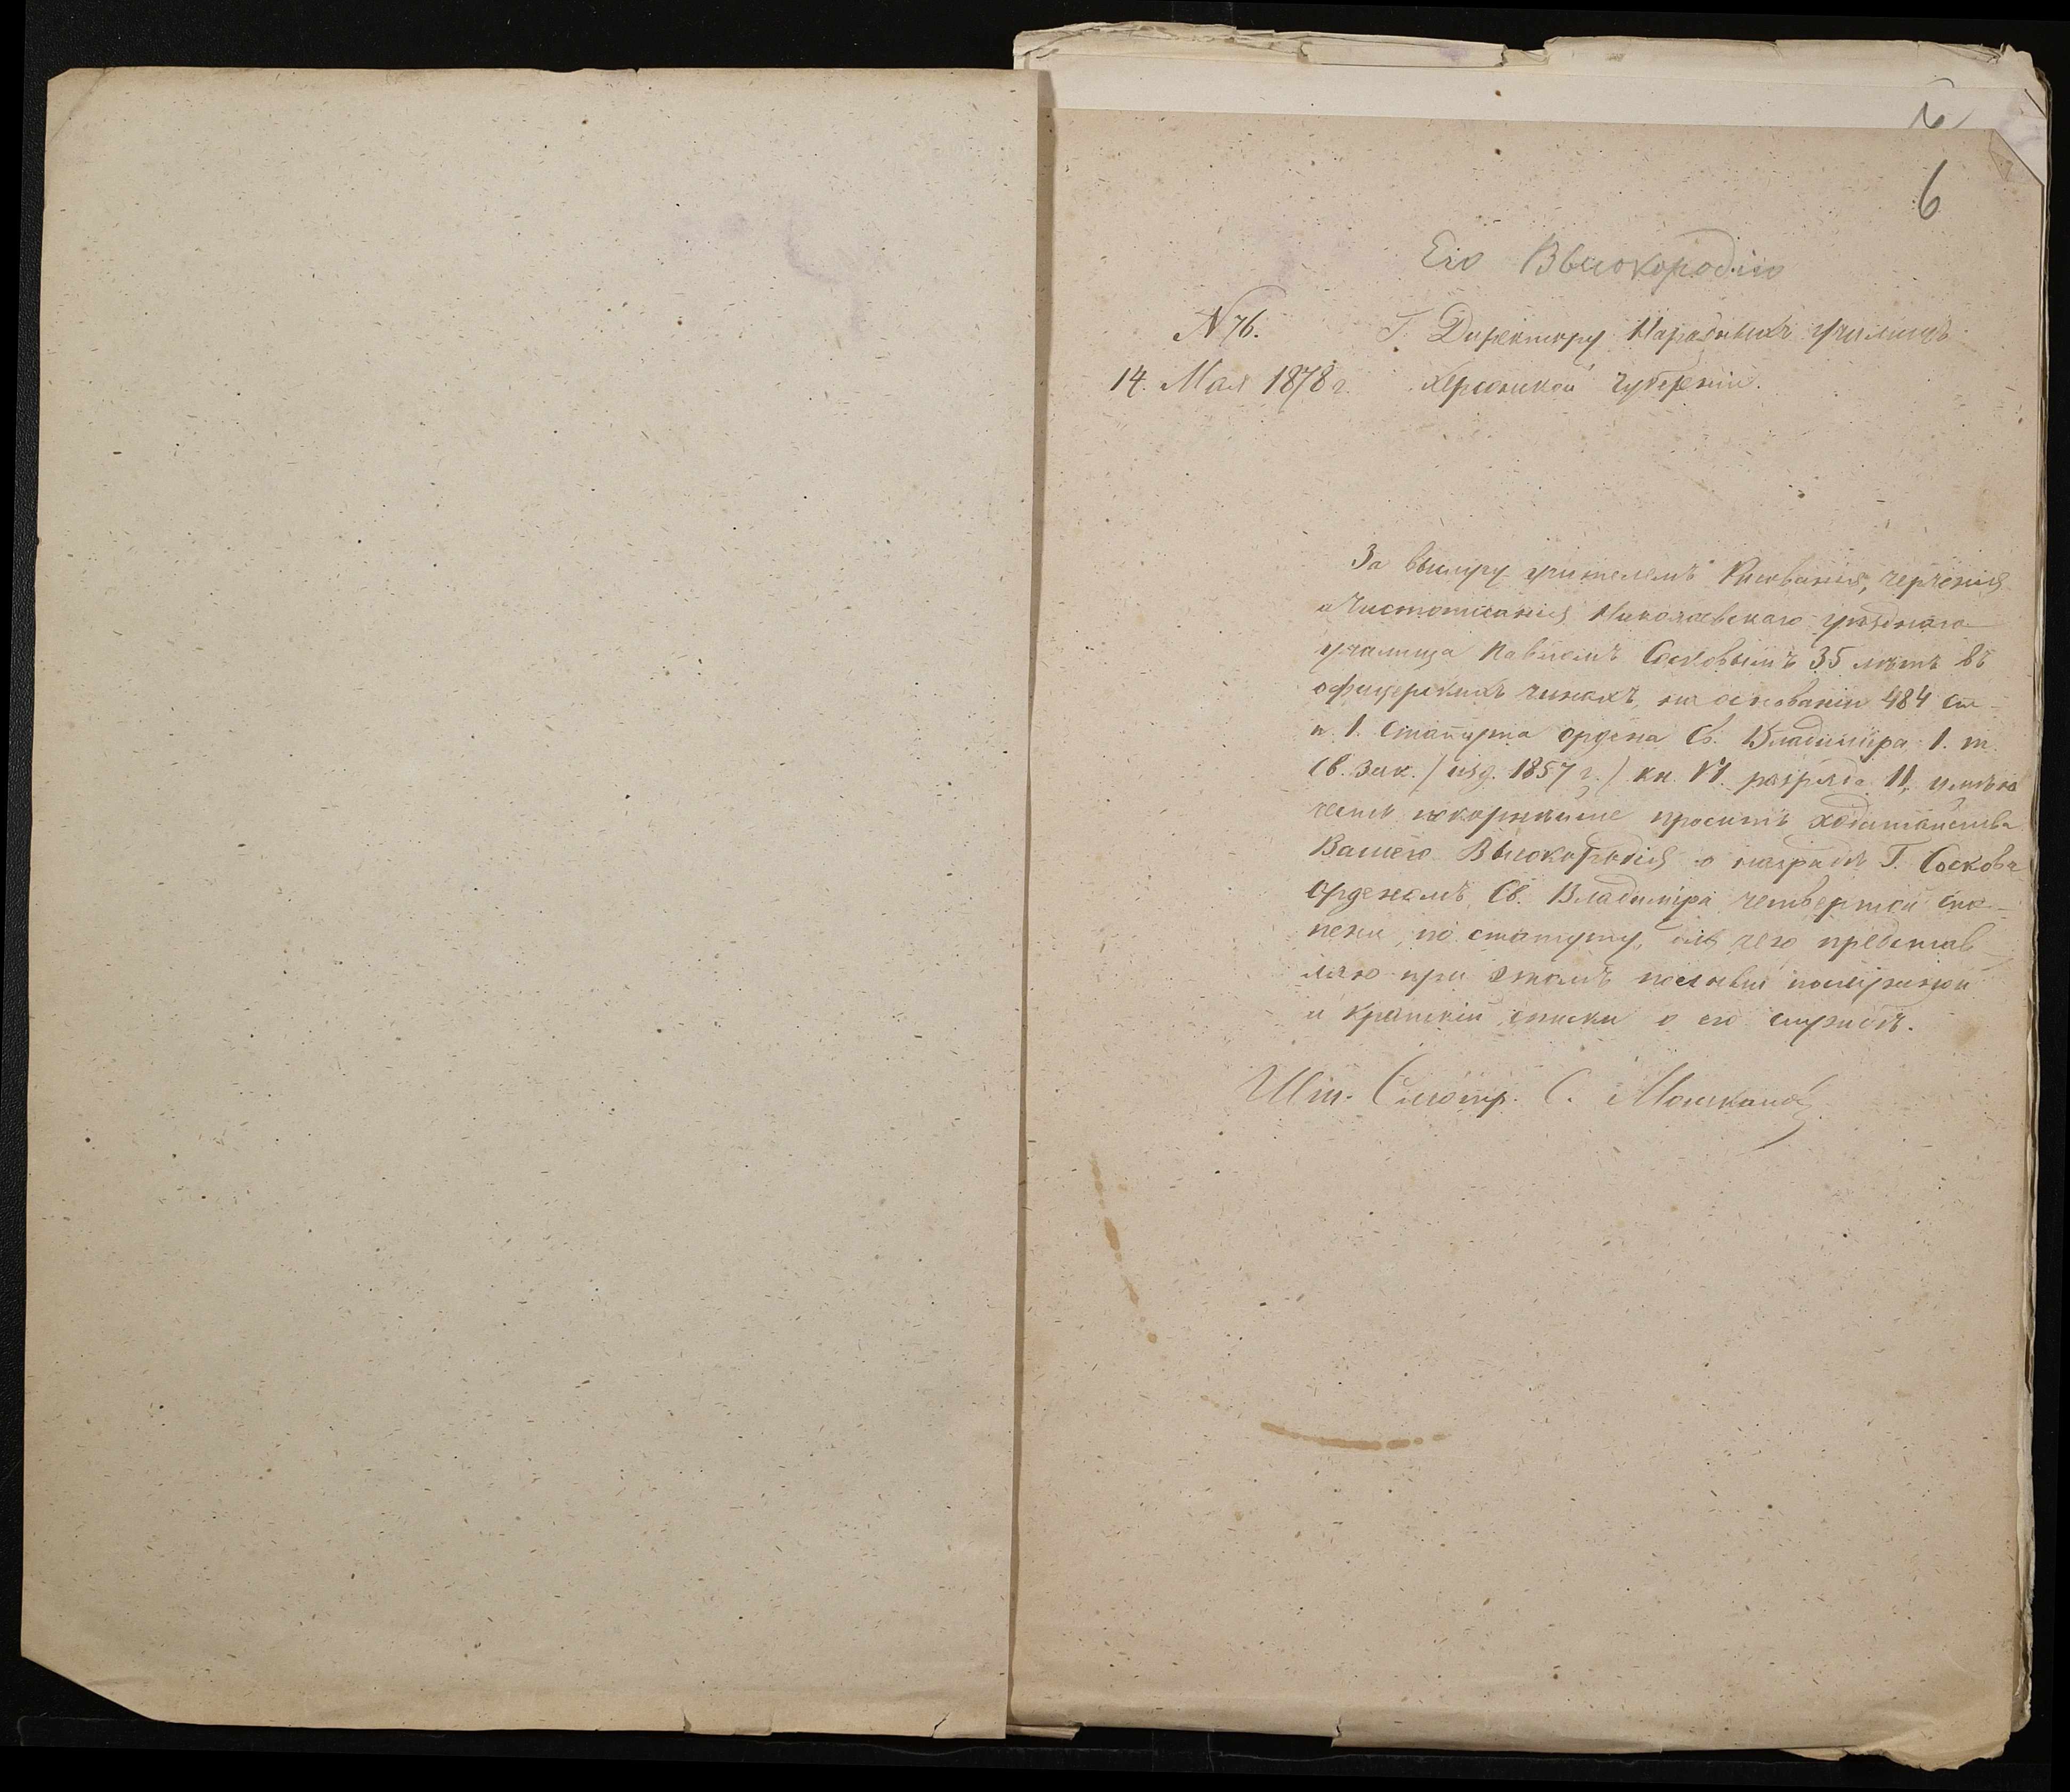 6
Его Высокородію
N 76. Г. Директору Народныхъ училищъ
14. Мая 1878 г. Херсонской губерніи.
За выслугу учителемъ Рисованія, черченія
и Чистописанія Николаевскаго уѣзднаго
училища Павломъ Сосковымъ 35 лѣтъ въ
офицерскихъ чинахъ, на основаніи 484 ст
п. 1. Статута ордена Св. Владиміра 1. т.
Св. Зак. / изд. 1857 г. / кн. VI. разряда 11, имѣю
честь покорнѣйше просить ходатайства
Вашего Высокородія о наградѣ Г. Соскова
Орденомъ Св. Владиміра четвертой сте-
пени, по статуту, для чего представ
ляю при этомъ полный послужной
и краткій списки о его службѣ.
Шт. Смотр. С.